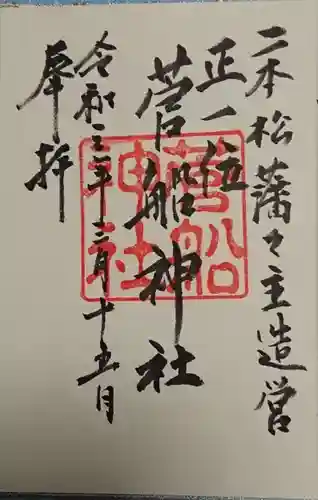 二本松藩々主造営
正一位
菅船神社
令和三年三月十五月
奉拝
菅船神社